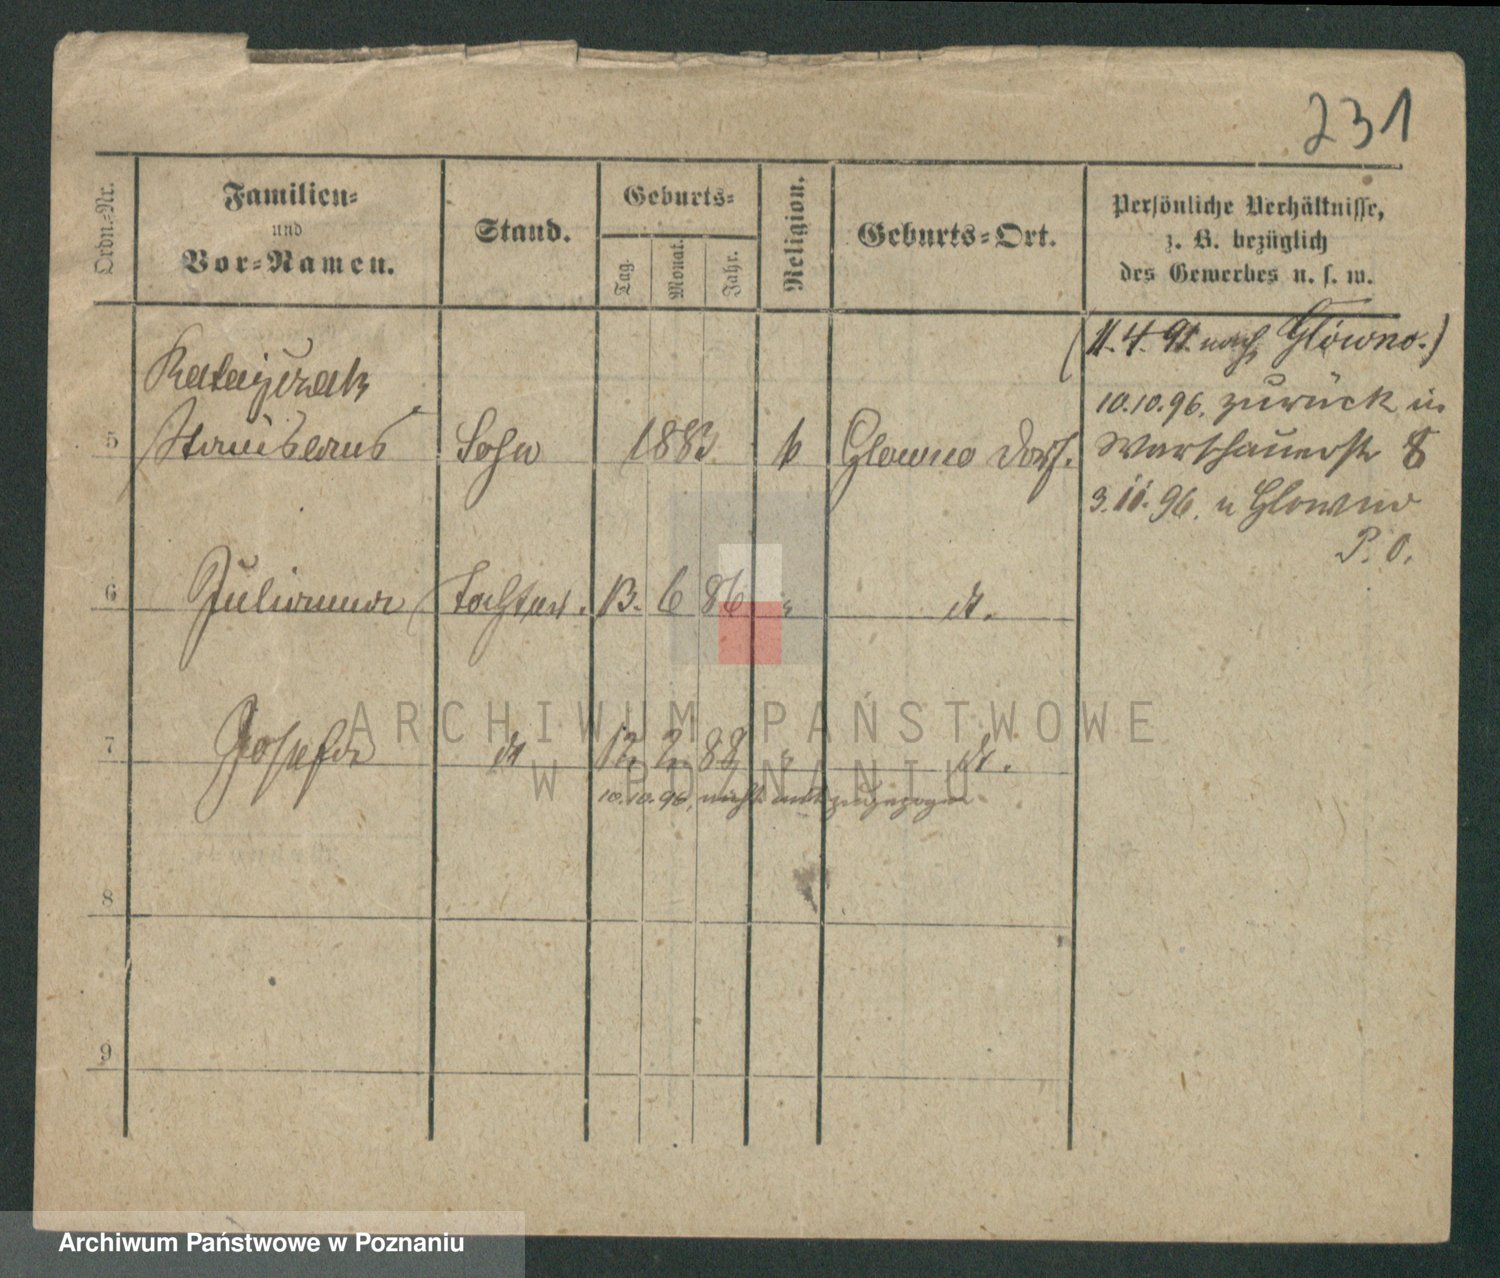 231
Ordn.-Nr.
Familien-
und
Vor-Namen.
Stand.
Geburts-
Tag.
Monat.
Jahr.
Religion.
Geburts-Ort.
Persönliche Verhältnisse,
z. B. bezüglich
des Gewerbes u. s. w.
(11.4.91. nach Glowno.)
Ratajczak
10.10.96. zurück in
5 Stanislaus Sohn 1883. k Glowno Dorf.
Warschauerstr 8
3.11.96. n Glowno
P. O.
6 Julianna Tochter. 13. 6 86 " dt.
7 Josefa dt 12 2. 88 " dt.
10.10.96, nicht mit zugezogen
8
9
ARCHIWUM PAŃSTWOWE
W POZNANIU
Archiwum Państwowe w Poznaniu